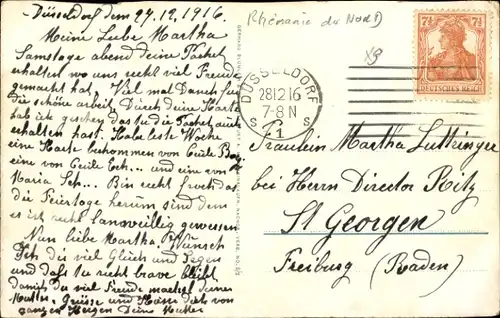 Düsseldorf den 27.12.1916.
Meine Liebe Martha
Samstags abend deine Packet
erhalten wo uns recht viel Freude
gemacht hat. Viel mal Dank für
die schöne arbeit. Durch deine Karte
hab ich gesehen das du die Packet auch
erhalten hast. Habe letzte Woche
eine Karte bekommen von Cecile
eine von Cecile Eck... und eine von
Maria Sch... Bin recht froh das
die Feiertage herum sind dem
es ist recht langweilig gewesen
Nun liebe Martha Wünsch
Ich dir viel Glück und Segen
und dass du recht brave bleibst
damit du viel Freude machst deiner
Mutter. Grüsse und Küsse dich von
ganzen Herzen Deine Mutter
Rhénanie du Nord
DÜSSELDORF
28.12.16
7-8N
S 1 S
7½ 7½
DEUTSCHES REICH
Fräulein Martha Luttringer
bei Herrn Director Ritz
St Georgen
Freiburg (Baden)